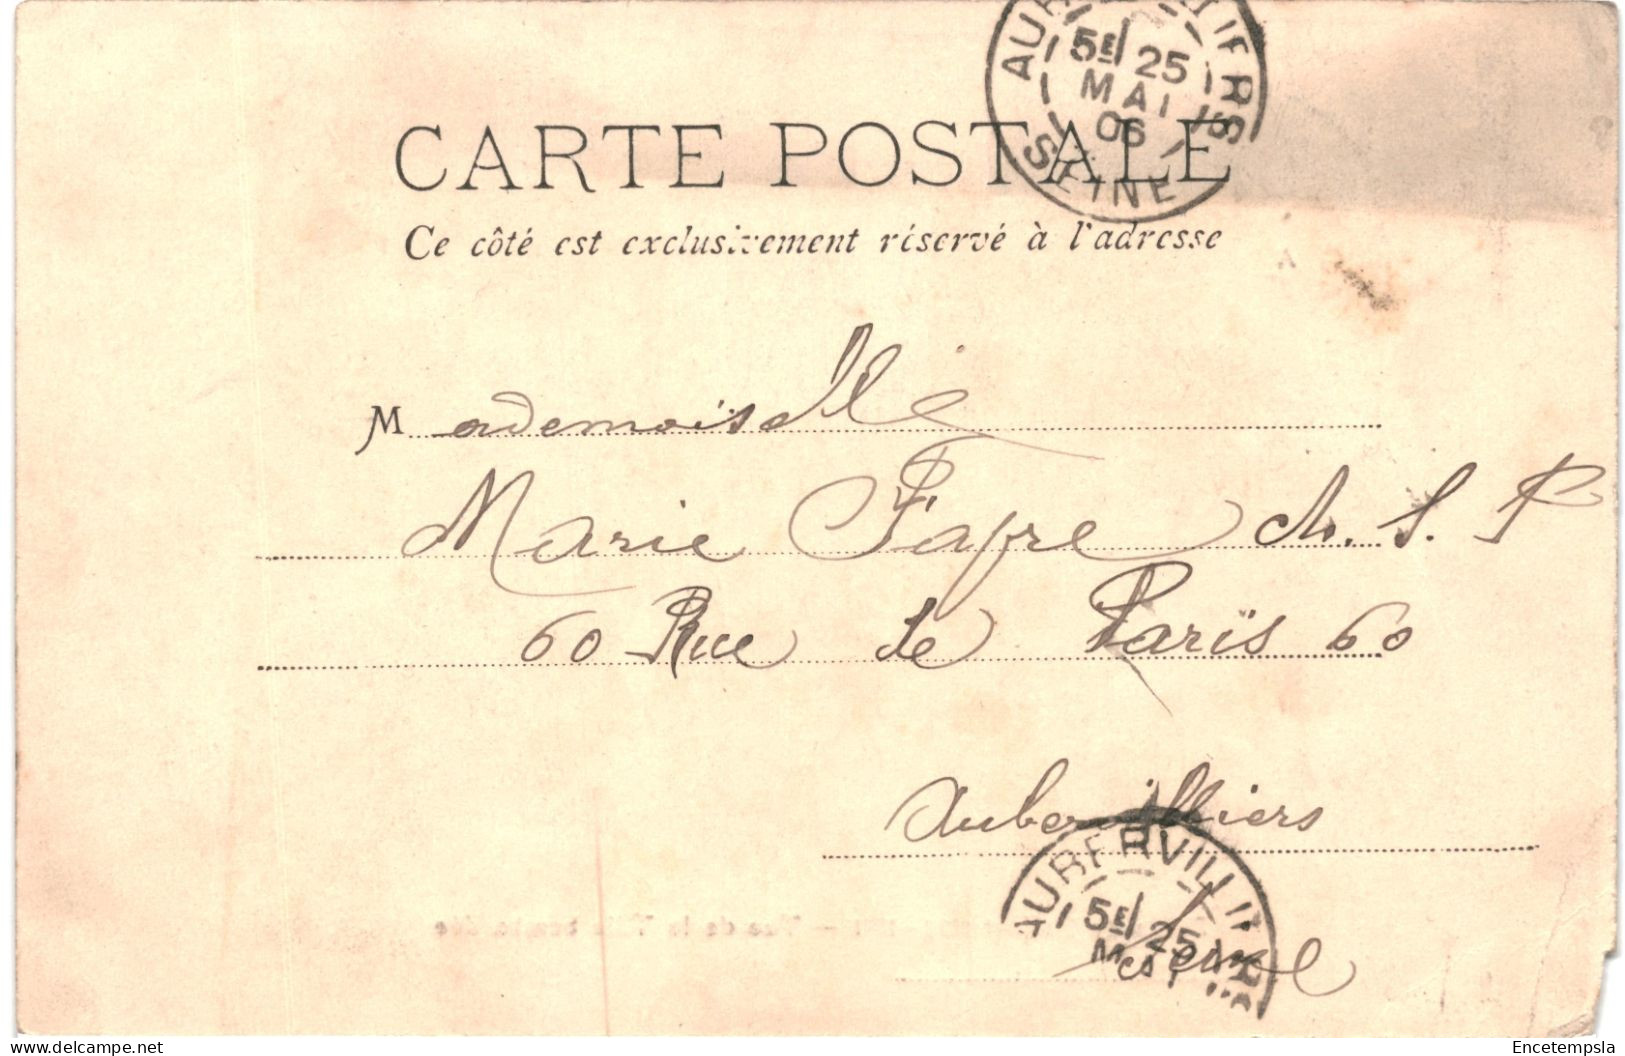 AUBERVILLIERS
5E 25
MAI
06
SEINE
CARTE POSTALE
Ce côté est exclusivement réservé à l'adresse
Mademoiselle
Marie Fafre Ch. S. P
60 Rue de Paris 60
Aubervilliers
AUBERVILLIERS
5E 25
MAI
Seine
Encetempsla